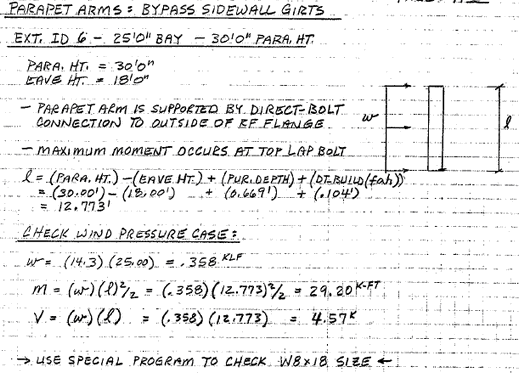 PARAPET ARMS: BYPASS SIDEWALL GIRTS
EXT. ID 6 - 25'0" BAY - 30'0" PARA. HT.
PARA. HT. = 30'0"
EAVE HT. = 18'0"
- PARAPET ARM IS SUPPORTED BY DIRECT-BOLT
CONNECTION TO OUTSIDE OF RF FLANGE
- MAXIMUM MOMENT OCCURS AT TOP LAP BOLT
w
l
l = (PARA. HT.) - (EAVE HT.) + (PUR. DEPTH) + (DT. BUILD (fah))
= (30.00') - (18.00') + (0.669') + (.104')
= 12.773'
CHECK WIND PRESSURE CASE:
w = (14.3)(25.00) = .358 KLF
M = (w)(l)²/2 = (.358)(12.773)²/2 = 29.20 K-FT
V = (w)(l) = (.358)(12.773) = 4.57 K
→ USE SPECIAL PROGRAM TO CHECK W8x18 SIZE ←